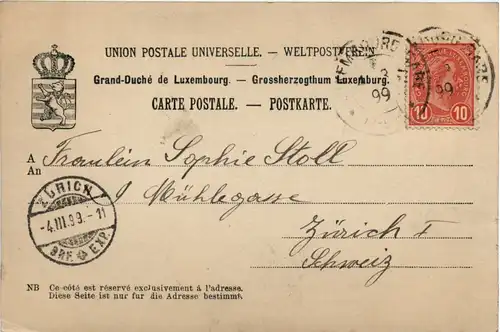 UNION POSTALE UNIVERSELLE. — WELTPOSTVEREIN
Grand-Duché de Luxembourg. — Grossherzogthum Luxemburg.
CARTE POSTALE. — POSTKARTE.
3
99
99
10 10
A
An
Fraulein Sophie Stoll
9 Mühlegasse
Zürich I
Schweiz
ZÜRICH
-4.III.99.-11
BRF. EXP.
NB Ce côté est réservé exclusivement à l'adresse.
Diese Seite ist nur fur die Adresse bestimmt.